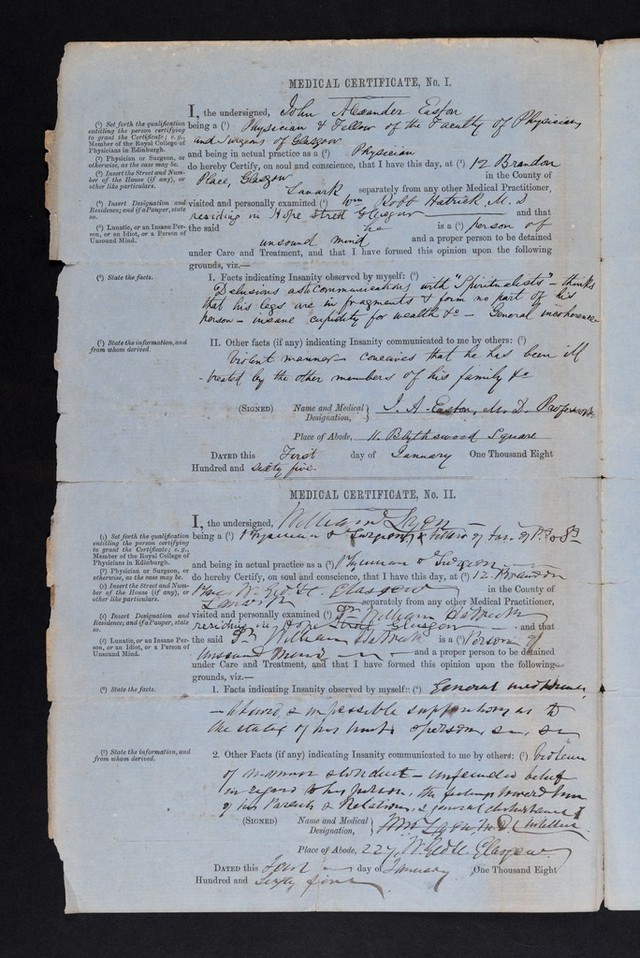 MEDICAL CERTIFICATE, No. I.
I, the undersigned, John Alexander Easton
(¹) Set forth the qualification entitling the person certifying to grant the Certificate; e.g., Member of the Royal College of Physicians in Edinburgh.
being a (¹) Physician & Fellow of the Faculty of Physicians
and Surgeons of Glasgow
(²) Physician or Surgeon, or otherwise, as the case may be.
and being in actual practice as a (²) Physician
(³) Insert the Street and Number of the House (if any), or other like particulars.
do hereby Certify, on soul and conscience, that I have this day, at (³) 12 Brandon
Place, Glasgow in the County of
Lanark separately from any other Medical Practitioner,
(⁴) Insert Designation and Residence; and if a Pauper, state so.
visited and personally examined (⁴) Wm Robb Hatrick M.D
residing in Hope Street Glasgow and that
(⁵) Lunatic, or an Insane Person, or an Idiot, or a Person of Unsound Mind.
the said he is a (⁵) person of
unsound mind and a proper person to be detained
under Care and Treatment, and that I have formed this opinion upon the following
grounds, viz.—
(⁶) State the facts.
I. Facts indicating Insanity observed by myself: (⁶)
Delusions as to communications with "Spiritualists" – thinks
that his legs are in fragments & form no part of his
person – insane cupidity for wealth &c – General incoherence
(⁷) State the information, and from whom derived.
II. Other facts (if any) indicating Insanity communicated to me by others: (⁷)
Violent manner – conceives that he has been ill
treated by the other members of his family &c
(SIGNED) Name and Medical Designation, J. A. Easton, M.D. Professor
Place of Abode, 11 Blythswood Square
DATED this First day of January One Thousand Eight
Hundred and sixty five.
MEDICAL CERTIFICATE, No. II.
I, the undersigned, William Lyon
(¹) Set forth the qualification entitling the person certifying to grant the Certificate; e.g., Member of the Royal College of Physicians in Edinburgh.
being a (¹) Physician & Surgeon, & Fellow of Fac. of P. & S.
(²) Physician or Surgeon, or otherwise, as the case may be.
and being in actual practice as a (²) Physician & Surgeon
(³) Insert the Street and Number of the House (if any), or other like particulars.
do hereby Certify, on soul and conscience, that I have this day, at (³) 12 Brandon
Place Glasgow in the County of
Lanark separately from any other Medical Practitioner,
(⁴) Insert Designation and Residence; and if a Pauper, state so.
visited and personally examined (⁴) Dr William Hatrick
residing in Hope Street Glasgow and that
(⁵) Lunatic, or an Insane Person, or an Idiot, or a Person of Unsound Mind.
the said Dr William Hatrick is a (⁵) Person of
Unsound Mind and a proper person to be detained
under Care and Treatment, and that I have formed this opinion upon the following
grounds, viz.—
(⁶) State the facts.
1. Facts indicating Insanity observed by myself: (⁶) General incoherence
– absurd & impossible suppositions as to
the state of his person
(⁷) State the information, and from whom derived.
2. Other Facts (if any) indicating Insanity communicated to me by others: (⁷) Violence
of manner & conduct – unfounded belief
in regard to his person, the feelings toward him
of his Parents & Relations, & general disturbance of
Intellect.
(SIGNED) Name and Medical Designation, Wm Lyon, M.D.
Place of Abode, 227 W. Geo. St. Glasgow
DATED this day of January One Thousand Eight
Hundred and Sixty five